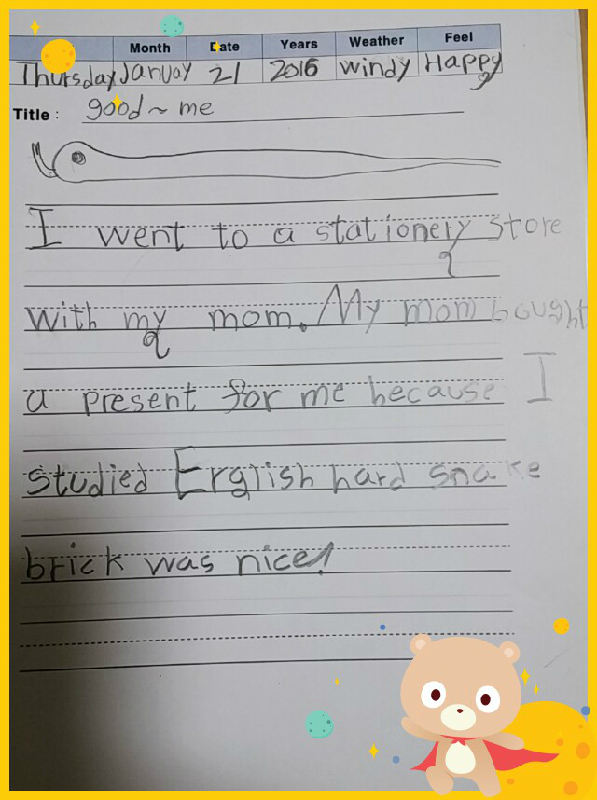 Month Date Years Weather Feel
Thursday January 21 2016 windy Happy
Title : good~ me
I went to a stationery store
with my mom. My mom bought
a present for me because I
studied English hard snake
brick was nice!